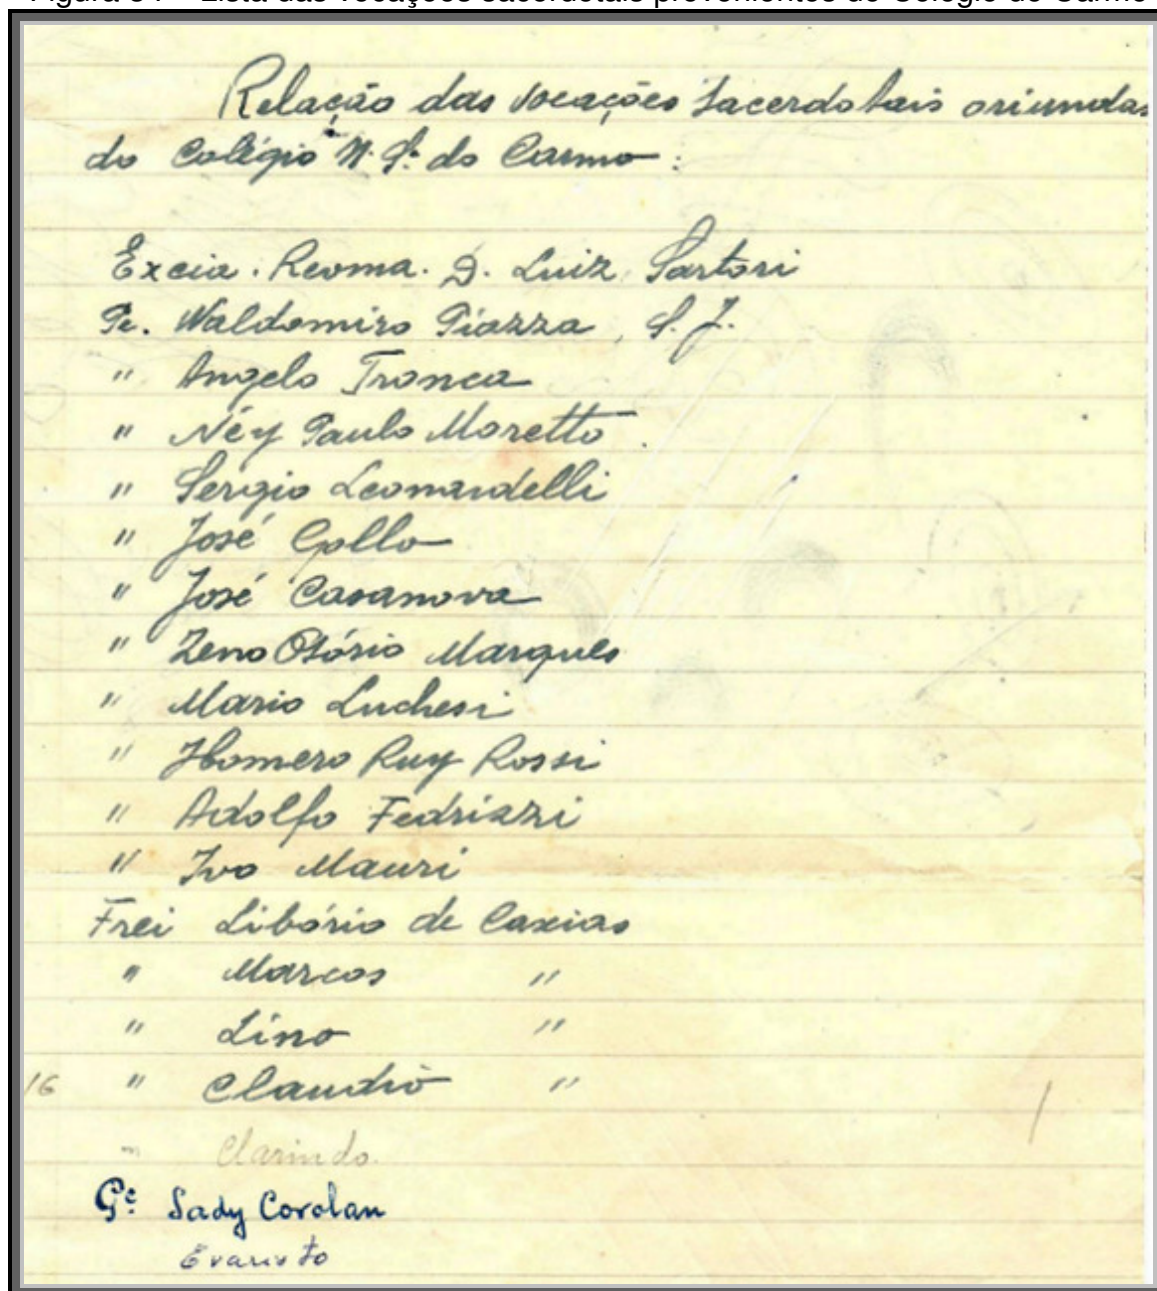 Lista das vocações sacerdotais provenientes do Colégio do Carmo
Relação das vocações sacerdotais oriundas
do Colégio N. Sª do Carmo:
Excia. Revma. D. Luiz Sartori
Pe. Waldomiro Piazza, S. J.
" Angelo Tronca
" Néy Paulo Moretto
" Sergio Leonardelli
" José Gollo
" José Casanova
" Zeno Osório Marques
" Mario Luchesi
" Homero Ruy Rossi
" Adolfo Fedrizzi
" Ivo Mauri
Frei Libório de Caxias
" Marcos "
" Lino "
16 " Claudio "
" Clarindo.
Pe Sady Corolan
Evaristo